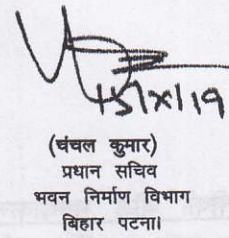 15/X/19
(चंचल कुमार)
प्रधान सचिव
भवन निर्माण विभाग
बिहार पटना।